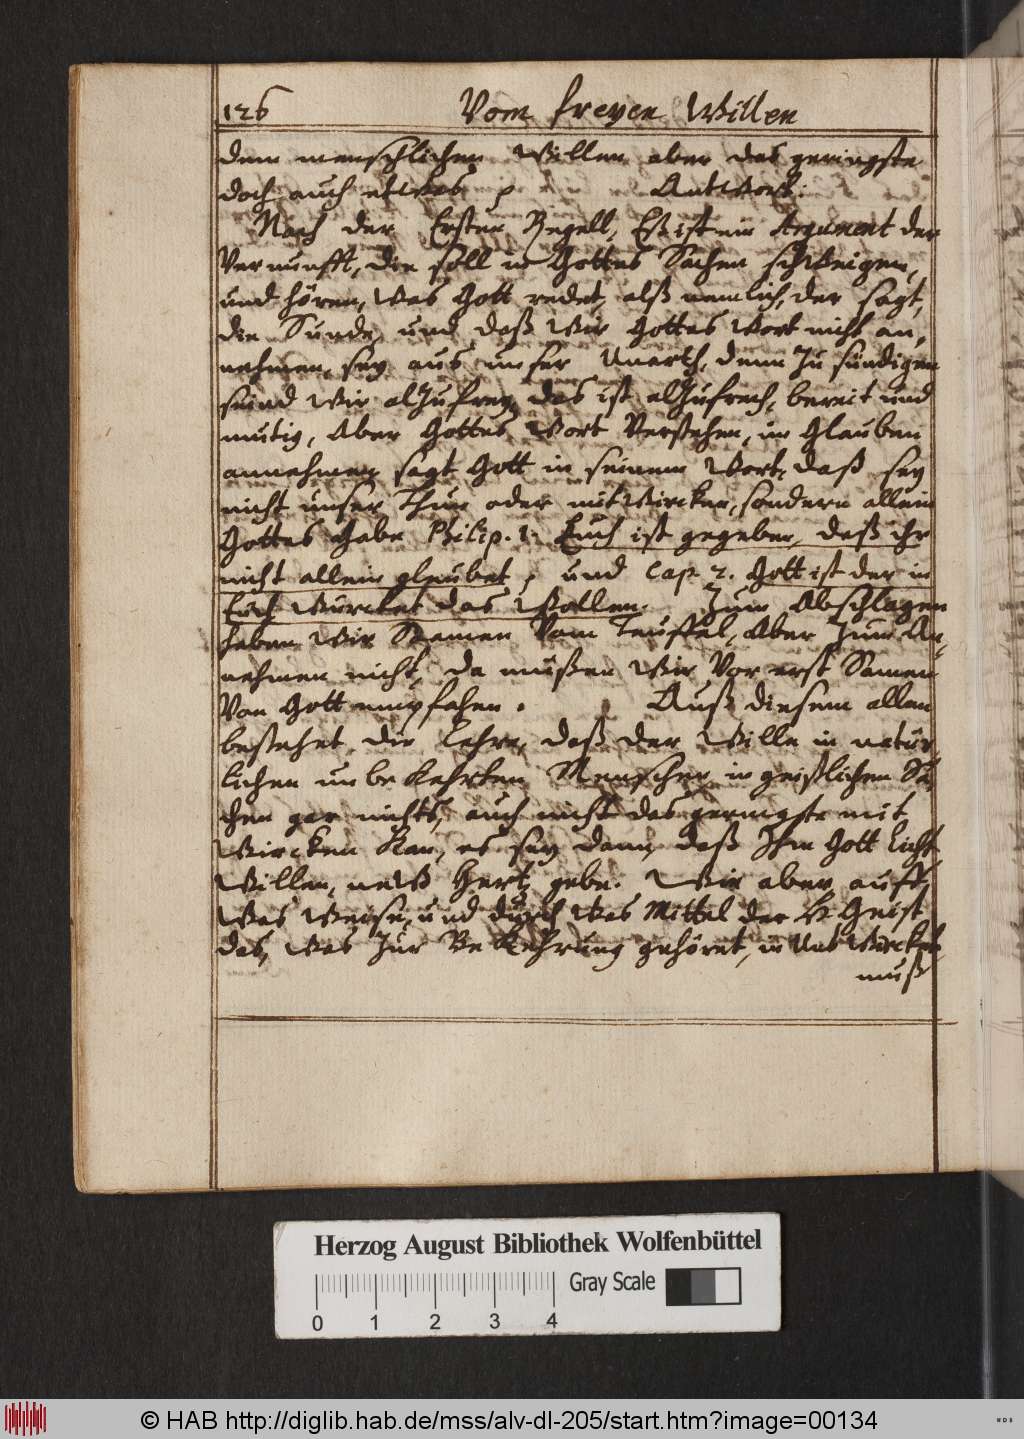 126 Vom freyen Willen
dem menschlichen Willen aber das geringste
doch auch etwas, Antwort:
Nach der Ersten Regell, Es ist ein Argument der
Vernunfft, die soll in Gottes Sachen schweigen,
und hören, was Gott redet, alß nemlich, der sagt,
die Sunde, und daß wir Gottes Wort nicht an,
nehmen, sey aus unser Unarth, denn zu sündigen
seind wir alzufrey, das ist alzufrech, bereit und
mutig, Aber Gottes Wort Verstehen, im Glauben
annehmen, sagt Gott in seinem Wort, daß sey
nicht unser Thun oder mitwircken, sondern allein
Gottes Gabe Philip. 1. Euch ist gegeben, daß ihr
nicht allein glaubet, und Cap. 2. Gott ist der in
Euch würcket das Wollen. Zum Abschlagen
haben wir Samen Vom Teuffel, Aber zum An,
nehmen nicht, da müßen wir Vor erst Samen
Von Gott empfahen. Auß diesem allen
bestehet die Lehre, daß der Wille in natür,
lichen unbekehrten Menschen in geistlichen Sa,
chen gar nichts, auch nicht das geringste mit
wircken kan, es sey dann, daß Ihm Gott Licht
Willen, new Hertz gebe. Wir aber, auff
was Weise, und durch was Mittel der H Geist
das, was zur Bekehrung gehöret, in Uns wircket
muß
Herzog August Bibliothek Wolfenbüttel
Gray Scale
0 1 2 3 4
© HAB http://diglib.hab.de/mss/alv-dl-205/start.htm?image=00134